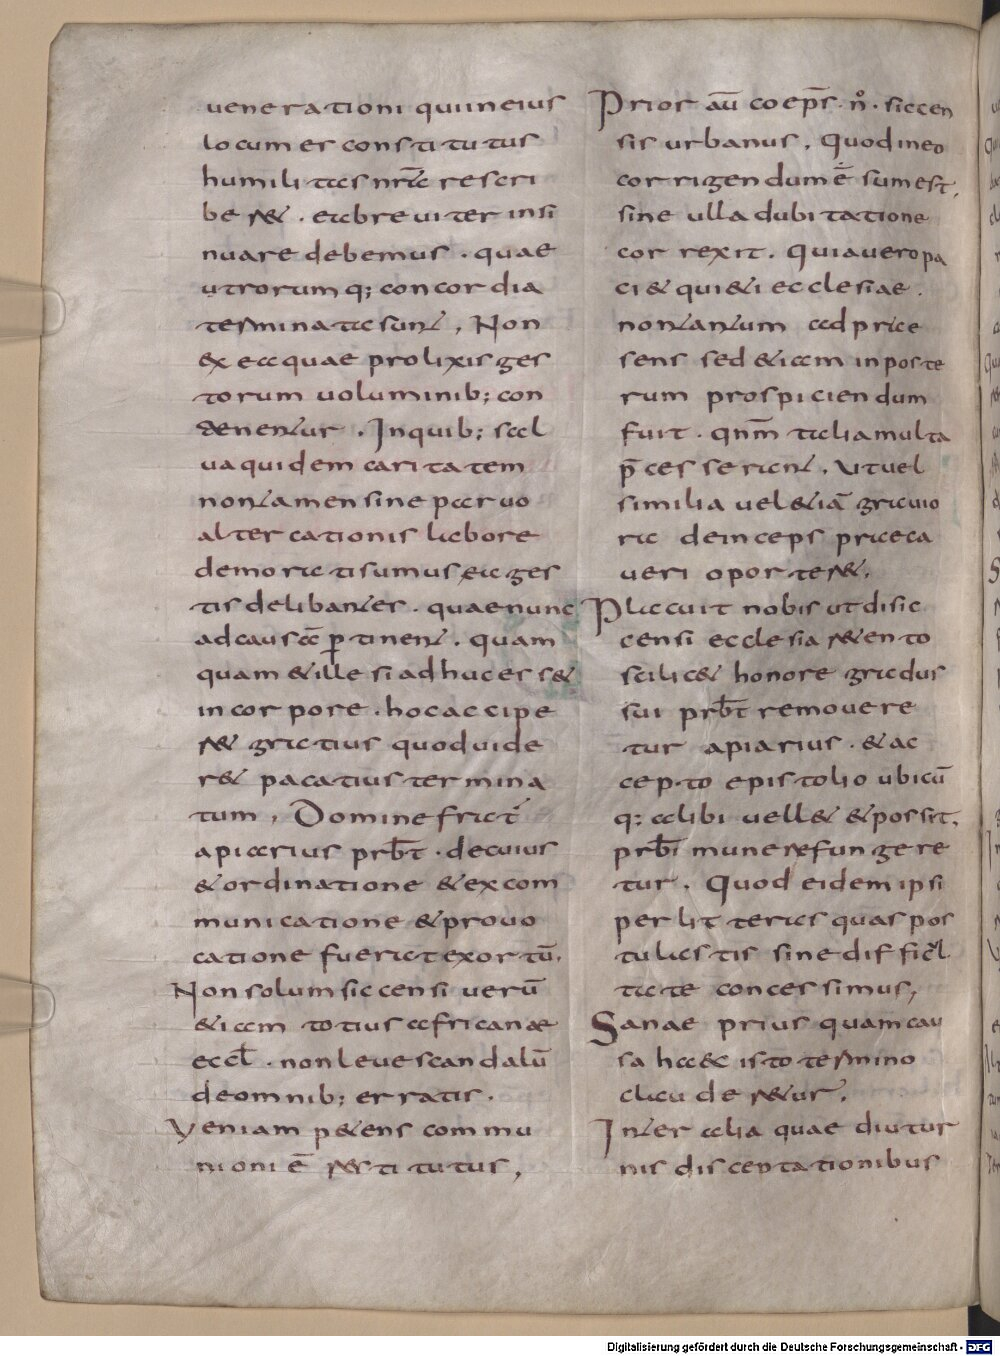 uenerationi quiineius
locum er constitutus
humilitas nrāe rescri
be ret. eabreuiter insi
nuare debemus. quae
utrorumq; concordia
terminata sunt, Non
ex eaquae prolixis ges
torum uoluminib; con
tenentur. Inquib; sal
uaquidem caritatem
nontamensine paruo
altercationis labore
demorati sumus, eages
tis delibantes. quaenunc
adcausā ptinent. quam
quam &ille siadhucess&
incorpore. hocaccipe
ret gratius quoduide
r& pacatius termina
tum, Domine frat
apiarius prbt. decuius
&ordinatione &excom
municatione &prouo
catione fuerat exortū.
Nonsolum siccensi uerū
&iam totius africanae
eccl. nonleue scandalū
deomnib; erratis.
Veniam petens commu
nioni ē restitutus,
Prior aū coeps. nr. siccen
sis urbanus, Quodineo
corrigendumē sumest,
sine ulla dubitatione
correxit. Quiaueropa
ci & quieti ecclesiae.
nontantum adprae
sens sed &iam inposte
rum prospiciendum
fuit. qnm taliamulta
pcesserant, Utuel
similia uel &iā grauio
ra deinceps praeca
ueri oporteret,
Placuit nobis utdesic
censi ecclesia retento
scilic& honore gradus
sui prbt remouere
tur apiarius. &ac
cepto epistolio ubicū
q; alibi uell& &possit,
prbi munere fungere
tur. Quod eidem ipsi
per litteras quas pos
tulastis sine difficul
tate concessimus,
Sanae prius quamcau
sa haec isto termino
claudere&ur,
Inter alia quae diutur
nis disceptationibus
Digitalisierung gefördert durch die Deutsche Forschungsgemeinschaft - DFG